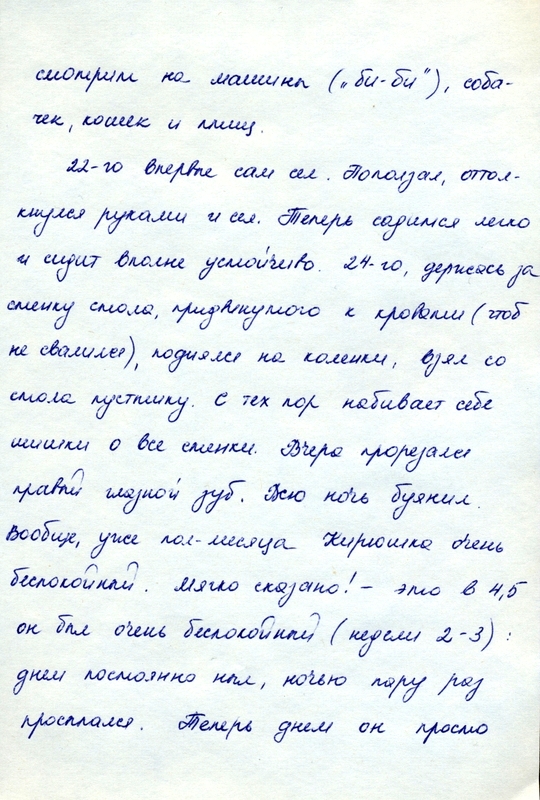 смотрим на машины („би-би"), соба-
чек, кошек и птиц.
22-го впервые сам сел. Поползал, оттол-
кнулся руками и сел. Теперь садится легко
и сидит вполне устойчиво. 24-го, держась за
стенку стола, придвинутого к кровати (чтоб
не свалился), поднялся на коленки, взял со
стола пустышку. С тех пор набивает себе
шишки о все стенки. Вчера прорезался
правый глазной зуб. Всю ночь буянил.
Вообще, уже пол-месяца Кирюшка очень
беспокойный. Мягко сказано! – это в 4,5
он был очень беспокойный (недели 2-3):
днем постоянно ныл, ночью пару раз
просыпался. Теперь днем он просто